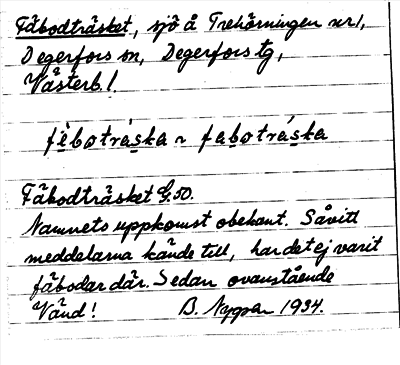 Fäbodträsket, sjö å Trehörningen
Degerfors sn, Degerfors tg,
Västerb. l.
fèbotràska ~ fabotràska
Fäbodträsket G.50.
Namnets uppkomst obekant. Såvitt
meddelarna kände till, har det ej varit
fäbodar där. Sedan ovanstående
Vänd! B. 1934.